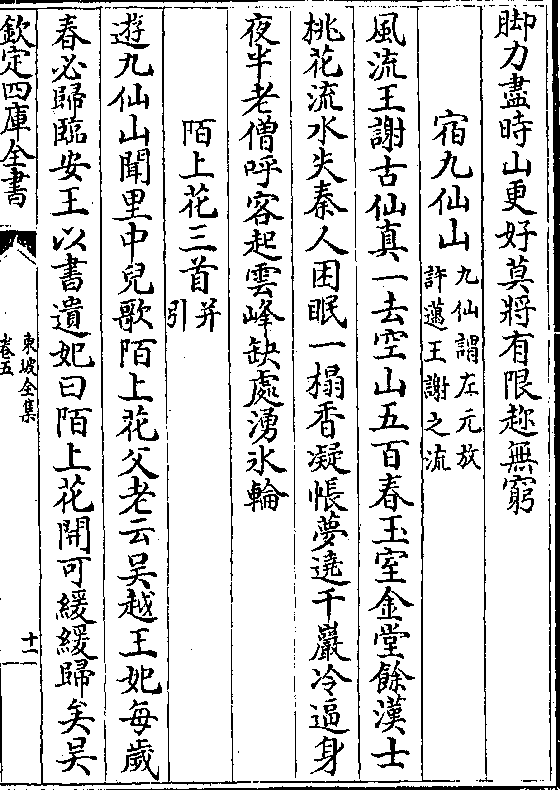 脚力盡時山更好莫將有限趂無窮
宿九仙山九仙謂左元放
許邁王謝之流
風流王謝古仙真一去空山五百春玉室金堂餘漢士
桃花流水失秦人困眠一榻香凝帳夢遶千巖冷逼身
夜半老僧呼客起雲峰缺處湧氷輪
陌上花三首并
引
遊九仙山聞里中兒歌陌上花父老云吳越王妃每歲
春必歸臨安王以書遺妃曰陌上花開可緩緩歸矣吳
欽定四庫全書
東坡全集
卷五
十一